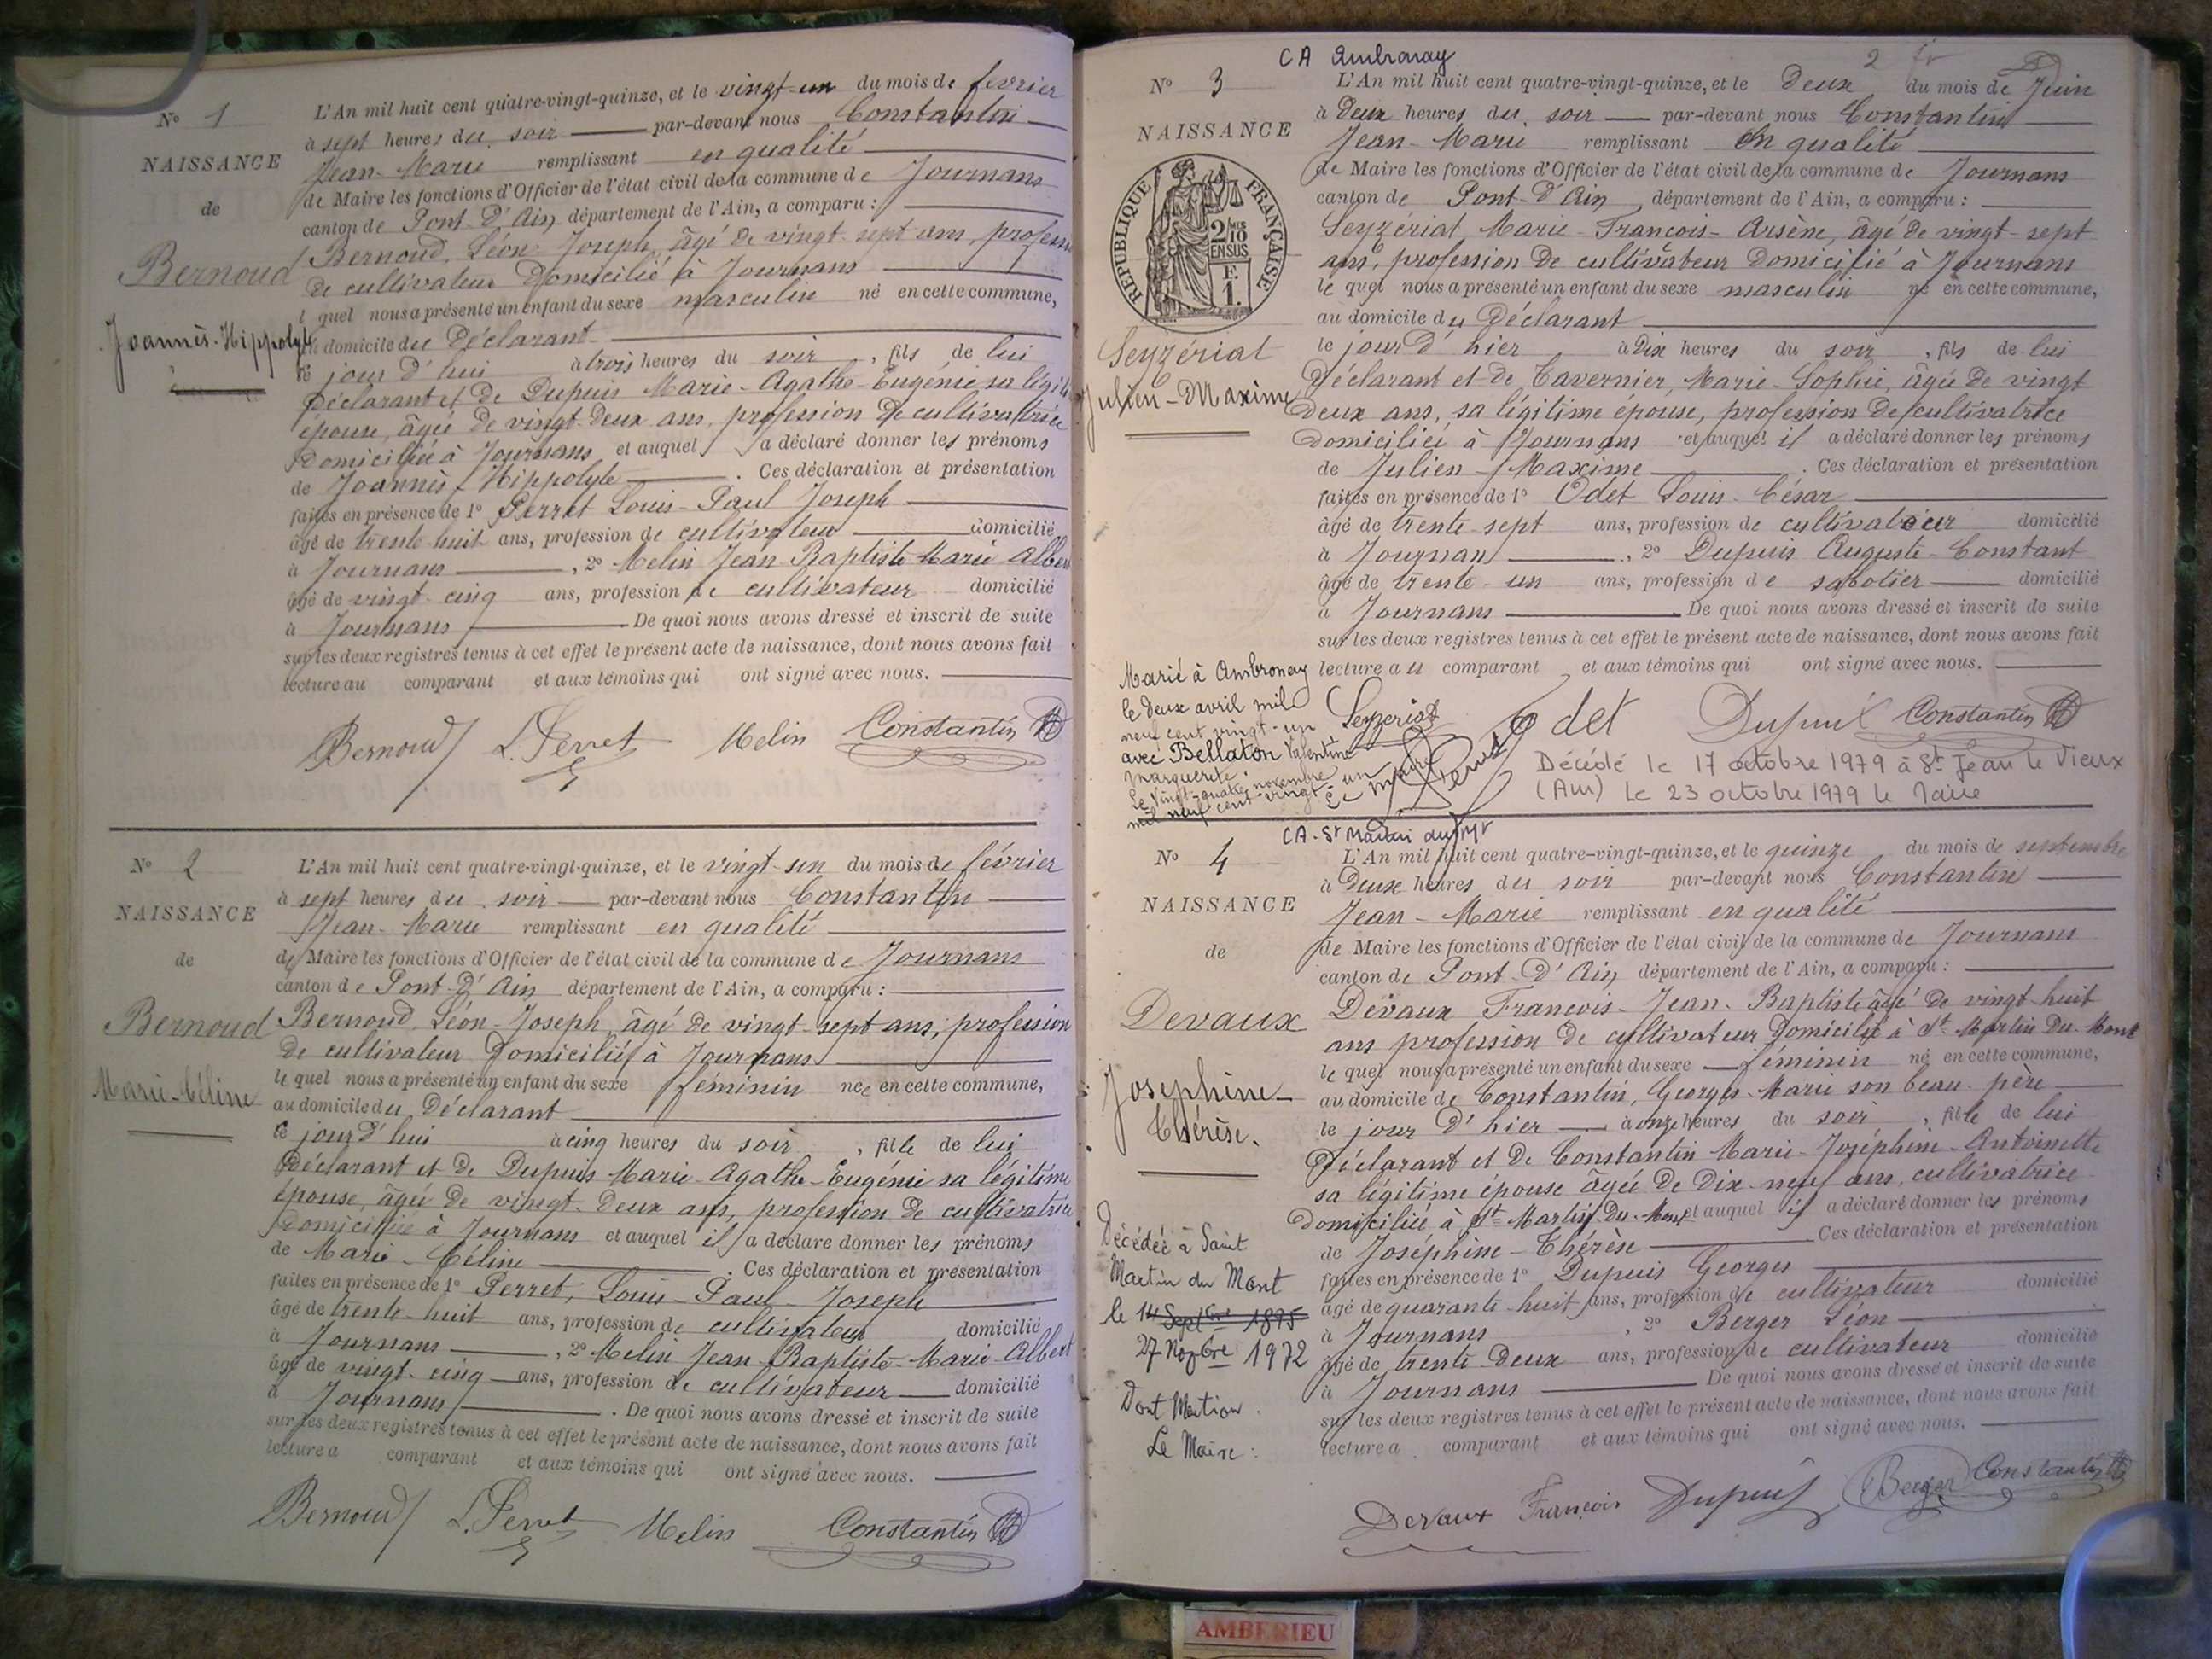 N° 1
NAISSANCE
de
Bernoud
Joannès-Hippolyte
L'An mil huit cent quatre-vingt-quinze, et le vingt-un du mois de février
à sept heures du soir par-devant nous Constantin
Jean-Marie remplissant en qualité
de Maire les fonctions d'Officier de l'état civil de la commune de Journans
canton de Pont-D'Ain, département de l'Ain, a comparu :
Bernoud, Léon-Joseph, âgé de vingt-sept ans, profession
de cultivateur Domicilié à Journans
l quel nous a présenté un enfant du sexe masculin né en cette commune,
au domicile du Déclarant
le jour d'hui à trois heures du soir, fils de lui
Déclarant et de Dupuis Marie-Agathe-Eugénie sa légitime
épouse, âgée de vingt-deux ans, profession de cultivatrice
Domiciliée à Journans et auquel il a déclaré donner les prénoms
de Joannès-Hippolyte . Ces déclaration et présentation
faites en présence de 1° Perret Louis-Paul Joseph
âgé de trente-huit ans, profession de cultivateur domicilié
à Journans , 2° Melin Jean Baptiste Marie Albert
âgé de vingt-cinq ans, profession de cultivateur domicilié
à Journans De quoi nous avons dressé et inscrit de suite
sur les deux registres tenus à cet effet le présent acte de naissance, dont nous avons fait
lecture au comparant et aux témoins qui ont signé avec nous.
Bernoud L. Perret Melin Constantin
N° 2
NAISSANCE
de
Bernoud
Marie-Céline
L'An mil huit cent quatre-vingt-quinze, et le vingt-un du mois de février
à sept heures du soir par-devant nous Constantin
Jean-Marie remplissant en qualité
de Maire les fonctions d'Officier de l'état civil de la commune de Journans
canton de Pont-D'Ain département de l'Ain, a comparu :
Bernoud, Léon-Joseph, âgé de vingt-sept ans, profession
de cultivateur Domicilié à Journans
le quel nous a présenté un enfant du sexe féminin née en cette commune,
au domicile du Déclarant
le jour d'hui à cinq heures du soir, fille de lui
Déclarant et de Dupuis Marie-Agathe-Eugénie sa légitime
épouse, âgée de vingt-deux ans, profession de cultivatrice
Domiciliée à Journans et auquel il a déclaré donner les prénoms
de Marie-Céline . Ces déclaration et présentation
faites en présence de 1° Perret, Louis-Paul-Joseph
âgé de trente-huit ans, profession de cultivateur domicilié
à Journans , 2° Melin Jean-Baptiste-Marie-Albert
âgé de vingt-cinq ans, profession de cultivateur domicilié
à Journans . De quoi nous avons dressé et inscrit de suite
sur les deux registres tenus à cet effet le présent acte de naissance, dont nous avons fait
lecture a comparant et aux témoins qui ont signé avec nous.
Bernoud L. Perret Melin Constantin
CA Ambronay
2
N° 3
NAISSANCE
RÉPUBLIQUE FRANÇAISE
2/10 EN SUS
F.
1.
Seyzériat
Julien-Maxime
L'An mil huit cent quatre-vingt-quinze, et le Deux du mois de Juin
à Deux heures du soir par-devant nous Constantin
Jean-Marie remplissant en qualité
de Maire les fonctions d'Officier de l'état civil de la commune de Journans
canton de Pont-D'Ain, département de l'Ain, a comparu :
Seyzériat, Marie-François-Arsène, âgé de vingt-sept
ans, profession de cultivateur Domicilié à Journans
le quel nous a présenté un enfant du sexe masculin né en cette commune,
au domicile du Déclarant
le jour D'hier à Dix heures du soir, fils de lui
Déclarant et de Tavernier, Marie-Sophie, âgée de vingt
deux ans, sa légitime épouse, profession de cultivatrice
Domiciliée à Journans et auquel il a déclaré donner les prénoms
de Julien-Maxime . Ces déclaration et présentation
faites en présence de 1° Odet Louis-César
âgé de trente-sept ans, profession de cultivateur domicilié
à Journans , 2° Dupuis Auguste-Constant
âgé de trente-un ans, profession de sabotier domicilié
à Journans De quoi nous avons dressé et inscrit de suite
sur les deux registres tenus à cet effet le présent acte de naissance, dont nous avons fait
lecture au comparant et aux témoins qui ont signé avec nous.
Seyzeriat Odet Dupuis Constantin
Marié à Ambronay
le deux avril mil
neuf cent vingt-un
avec Bellaton Valentine
Marguerite.
Le vingt-quatre novembre
mil neuf cent vingt un
Le Maire
Décédé le 17 octobre 1979 à St Jean le Vieux
(Ain) Le 23 octobre 1979 le Maire
CA - St Martin du Mt
N° 4
NAISSANCE
de
Devaux
Josephine-
Thérèse.
Décédée à Saint
Martin du Mont
le 14 Septbre 1895
27 Novbre 1972
Dont Mention.
Le Maire :
L'An mil huit cent quatre-vingt-quinze, et le quinze du mois de septembre
à Deux heures du soir par-devant nous Constantin
Jean-Marie remplissant en qualité
de Maire les fonctions d'Officier de l'état civil de la commune de Journans
canton de Pont-D'Ain, département de l'Ain, a comparu :
Devaux François-Jean-Baptiste âgé de vingt-huit
ans profession de cultivateur Domicilié à St Martin Du Mont
le quel nous a présenté un enfant du sexe féminin né en cette commune,
au domicile de Constantin, Georges-Marie son beau-père
le jour D'hier à onze heures du soir, fille de lui
Déclarant et De Constantin Marie-Joséphine-Antoinette
sa légitime épouse âgée de Dix-neuf ans, cultivatrice
Domiciliée à St Martin-Du-Mont et auquel il a déclaré donner les prénoms
de Joséphine-Thérèse Ces déclaration et présentation
faites en présence de 1° Dupuis Georges
âgé de quarante-huit ans, profession de cultivateur domicilié
à Journans , 2° Berger Léon
âgé de trente-Deux ans, profession de cultivateur domicilié
à Journans De quoi nous avons dressé et inscrit de suite
sur les deux registres tenus à cet effet le présent acte de naissance, dont nous avons fait
lecture a comparant et aux témoins qui ont signé avec nous.
Devaux François Dupuis Berger Constantin
AMBERIEU